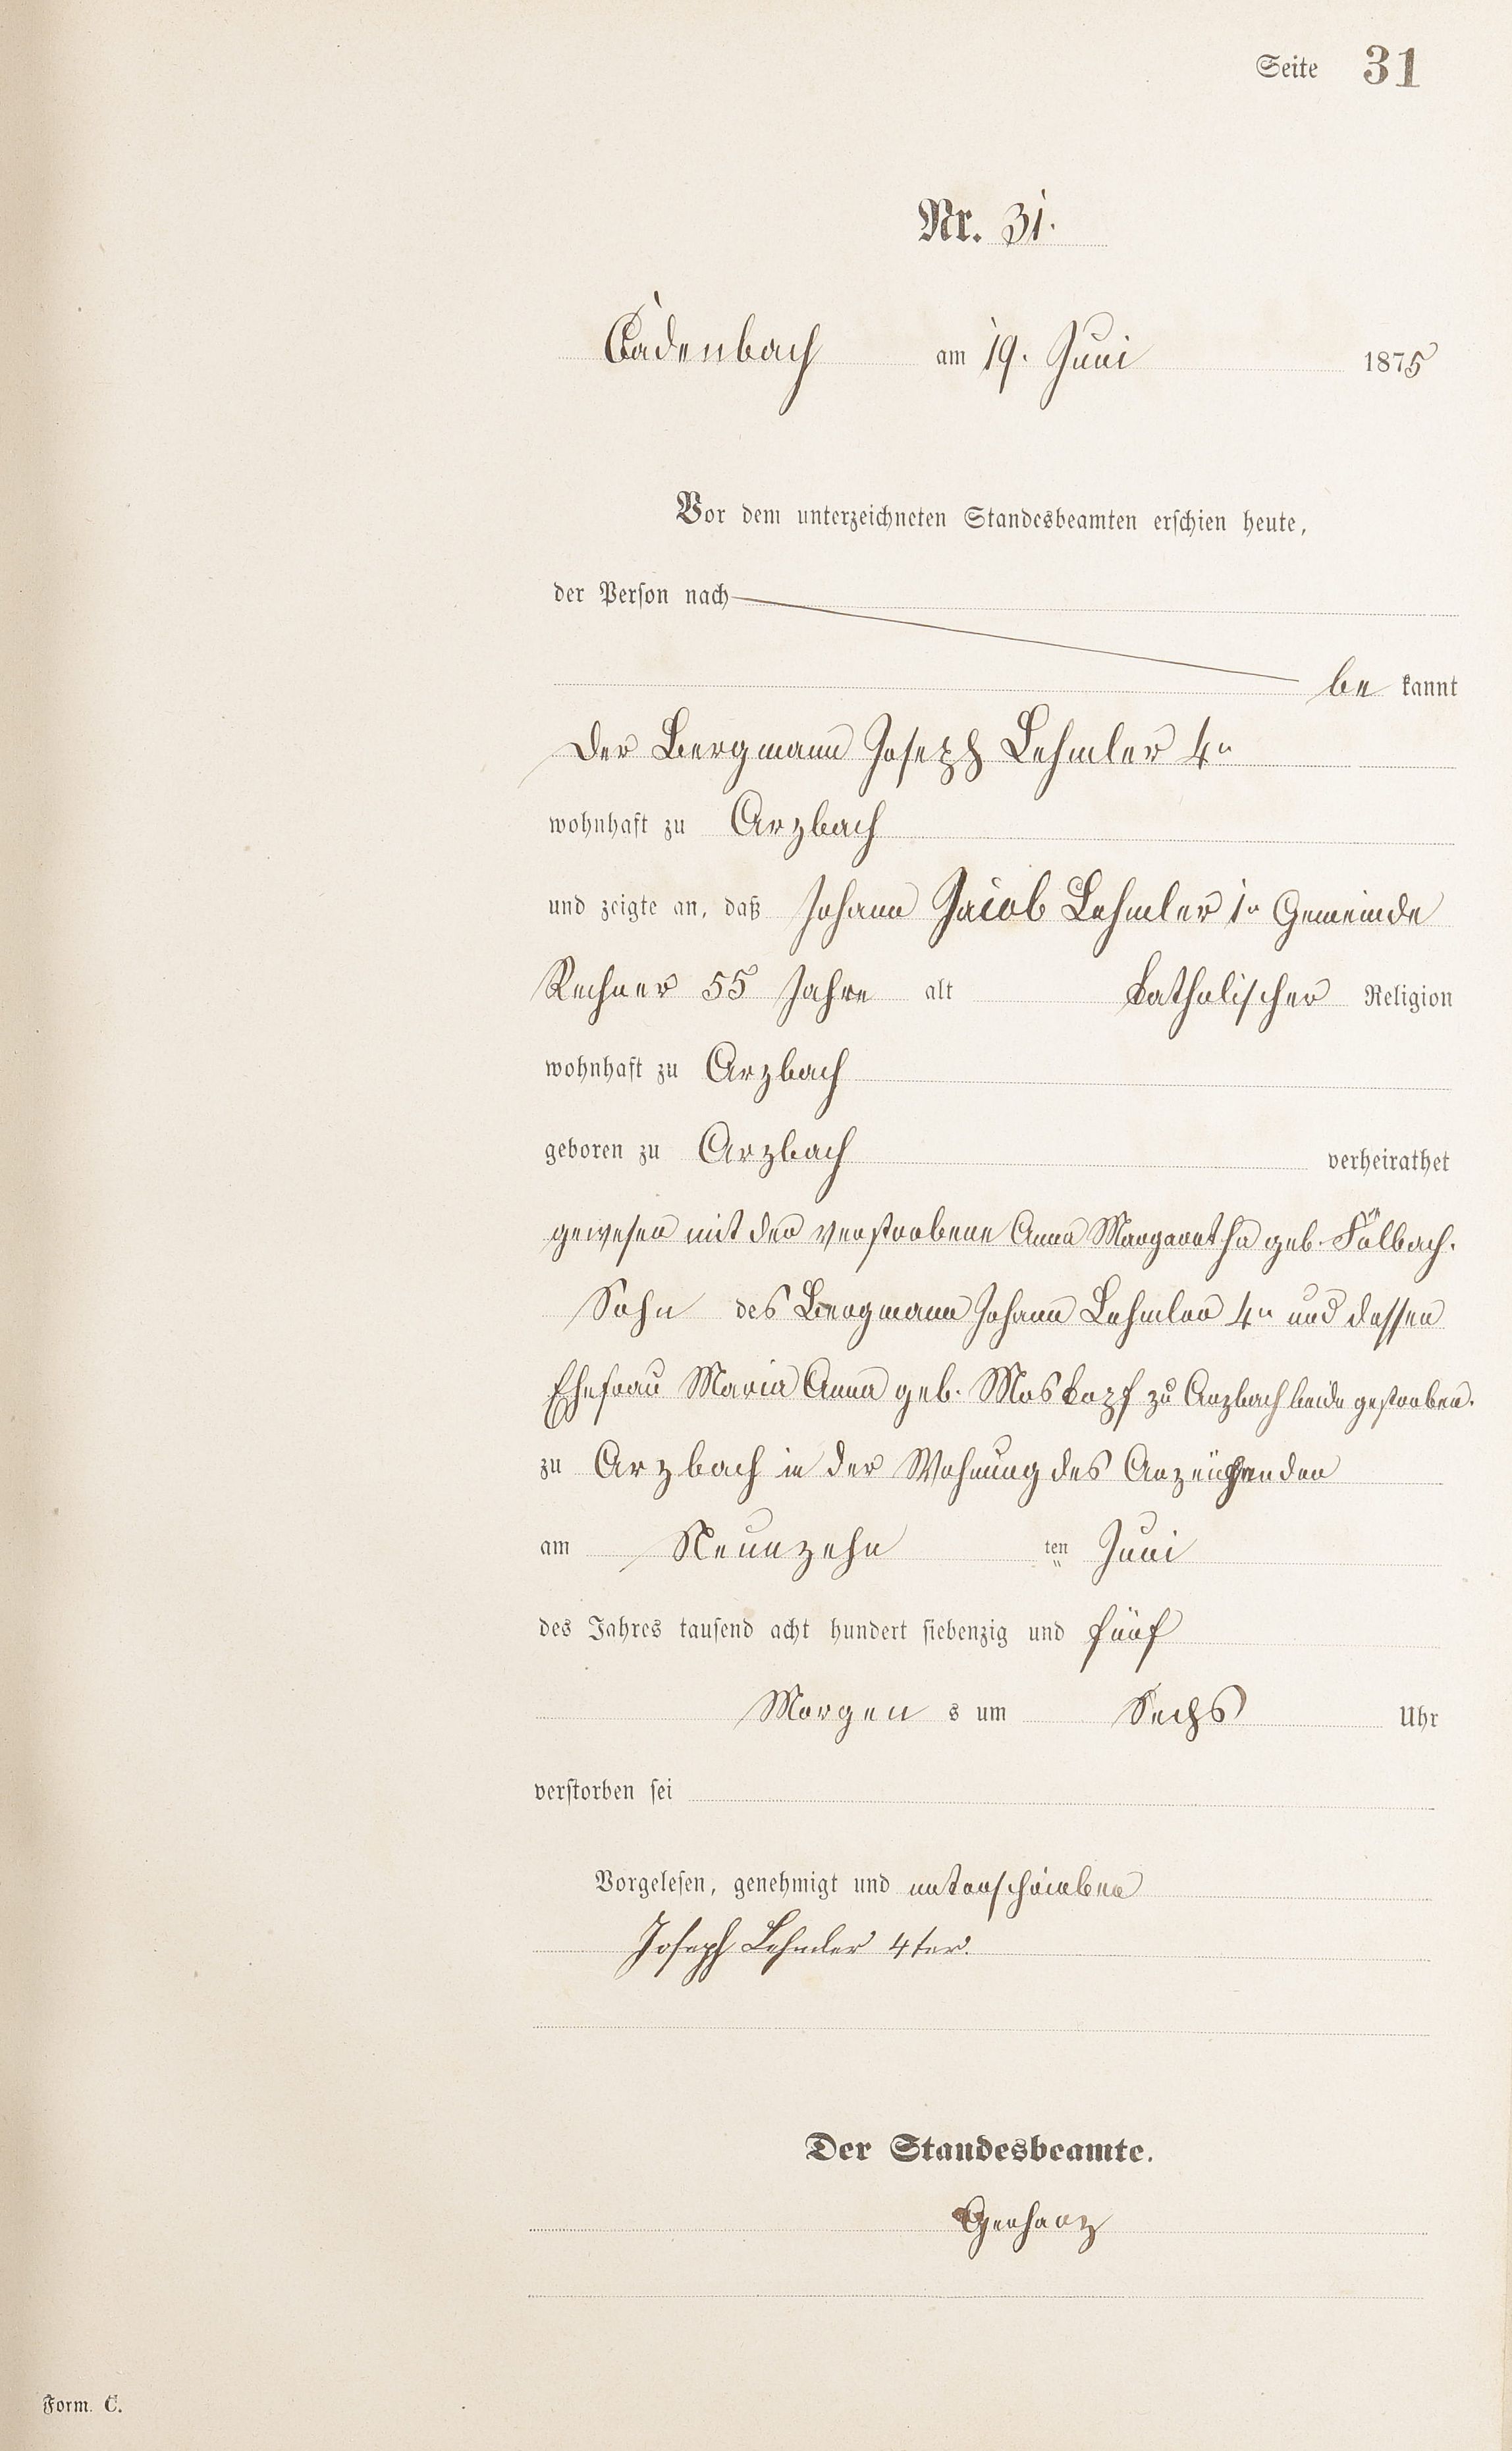 Seite 31
Nr. 31.
Cadenbach am 19. Juni 1875
Vor dem unterzeichneten Standesbeamten erschien heute,
der Person nach
be kannt
der Bergmann Joseph Lehmler 4r
wohnhaft zu Arzbach
und zeigte an, daß Johann Jacob Lehmler 1r Gemeinde
Rechner 55 Jahre alt katholischer Religion
wohnhaft zu Arzbach
geboren zu Arzbach verheirathet
gewesen mit der verstorbene Anna Margaretha geb. Fölbach.
Sohn des Bergmann Johann Lehmler 4r und dessen
Ehefrau Maria Anna geb. Moskopf zu Arzbach beide gestorben.
zu Arzbach in der Wohnung des Anzeigenden
am Neunzehn ten Juni
des Jahres tausend acht hundert siebenzig und fünf
Morgen s um Sechs Uhr
verstorben sei
Vorgelesen, genehmigt und unterschrieben
Joseph Lehmler 4ter.
Der Standesbeamte.
Gerharz
Form. C.